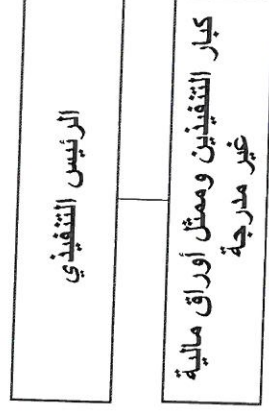 الرئيس التنفيذي
كبار التنفيذين وممثل أوراق مالية
غير مدرجة